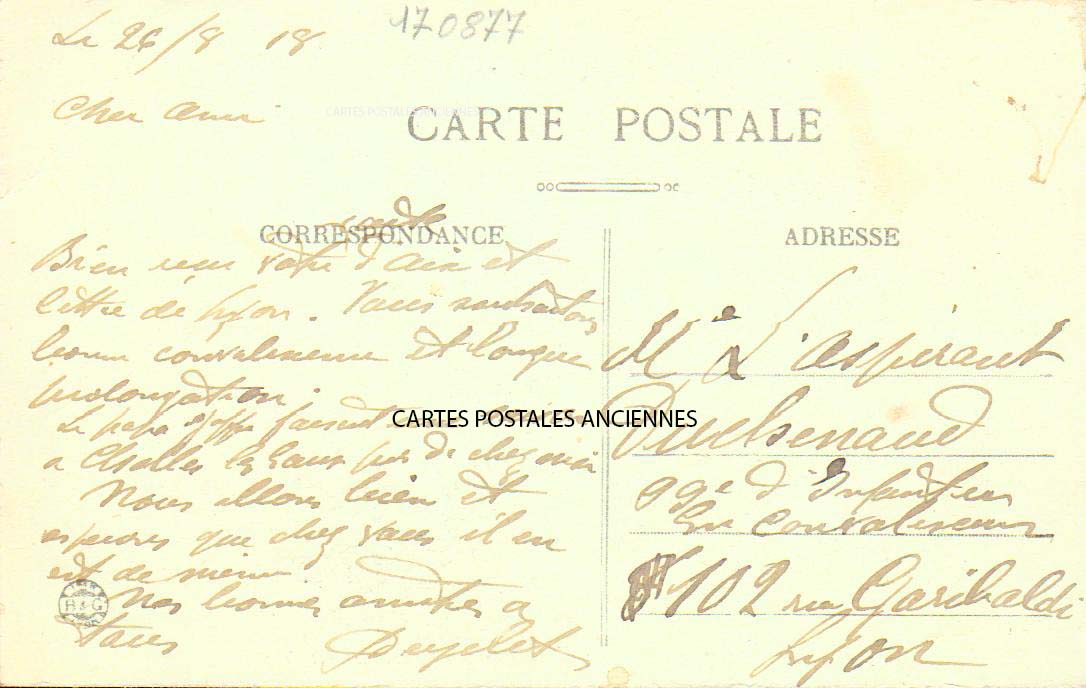 170877
Le 26/8 18
Cher Ami
CARTES POSTALES ANCIENNES
CARTE POSTALE
CORRESPONDANCE
carte
Bien reçu votre d'Aix et
lettre de Lyon. Vous souhaitons
bonne convalescence et longue
prolongation.
Le papa
CARTES POSTALES ANCIENNES
à Challes les Eaux près de chez moi
Nous allons bien et
espérons que chez vous il en
est de même.
Nos bonnes amitiés à
tous
H G
ADRESSE
Mr L'aspirant
99e d'Infanterie
En convalescence
102 rue Garibaldi
Lyon